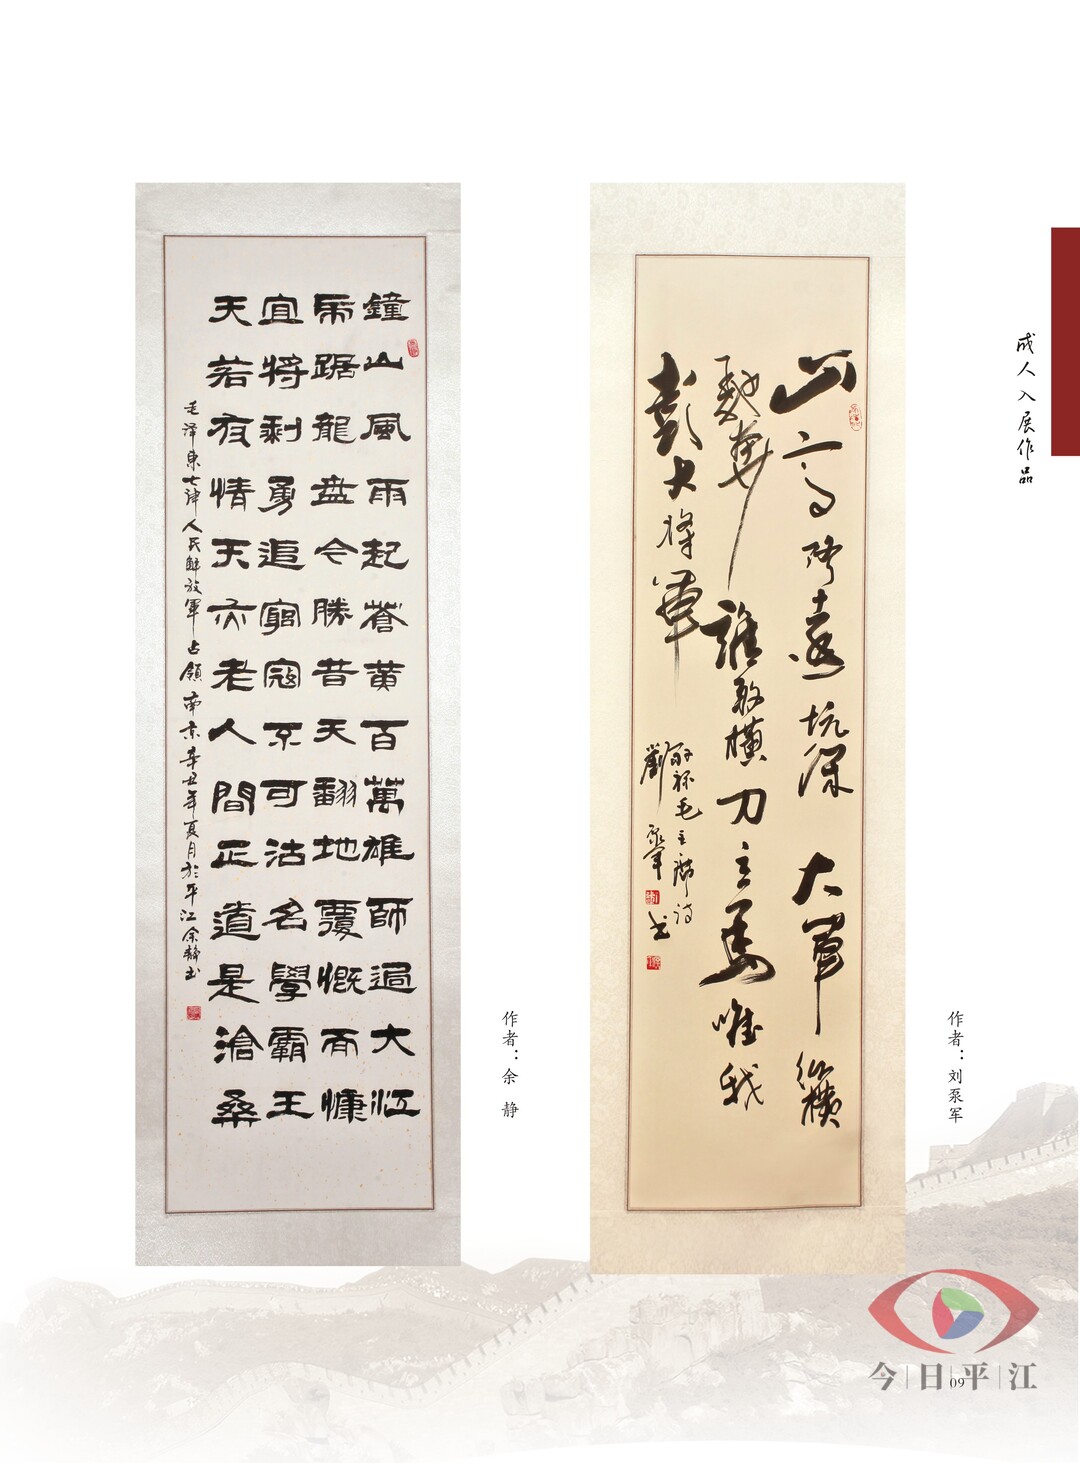 成人入展作品
山高路遠坑深大軍縱橫
馳奔誰敢橫刀立馬唯我
彭大將軍
毛主席诗
劉泵軍书
作者：刘泵军
鐘山風雨起蒼黄百萬雄師過大江
虎踞龍盘今勝昔天翻地覆慨而慷
宜將剩勇追窮寇不可沽名學霸王
天若有情天亦老人間正道是滄桑
毛泽東七律人民解放軍占領南京辛丑年夏月於平江余静书
作者：余 静
今日平江
09